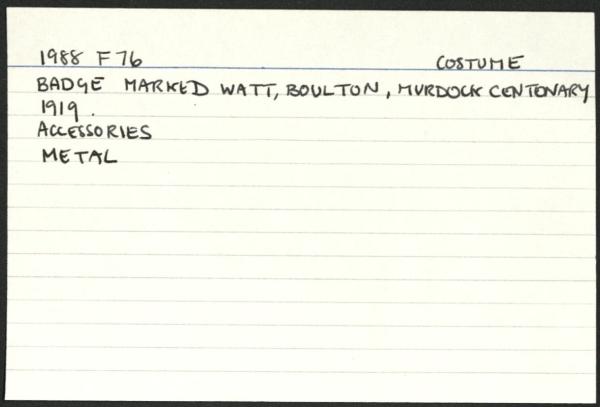 1988 F76 COSTUME
BADGE MARKED WATT, BOULTON, MURDOCK CENTENARY
1919.
ACCESSORIES
METAL